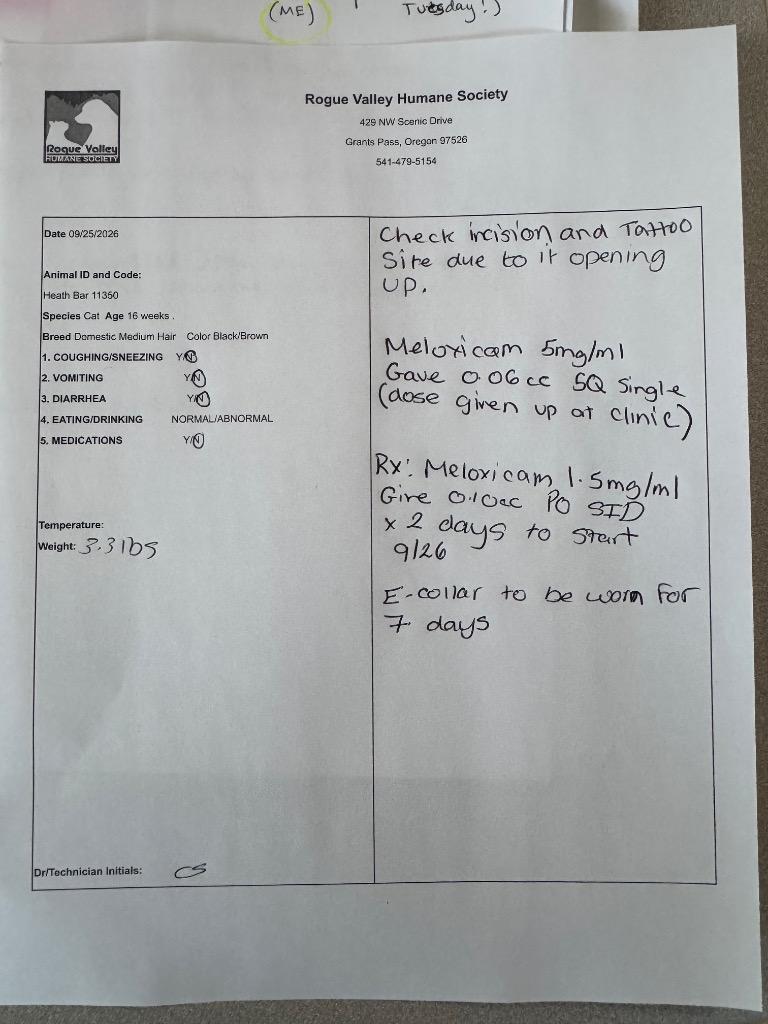 (ME)
Tuesday!)
Rogue Valley
HUMANE SOCIETY
Rogue Valley Humane Society
429 NW Scenic Drive
Grants Pass, Oregon 97526
541-479-5154
Date 09/25/2026
Animal ID and Code:
Heath Bar 11350
Species Cat Age 16 weeks .
Breed Domestic Medium Hair Color Black/Brown
1. COUGHING/SNEEZING Y/N
2. VOMITING Y/N
3. DIARRHEA Y/N
4. EATING/DRINKING NORMAL/ABNORMAL
5. MEDICATIONS Y/N
Temperature:
Weight: 3.3 lbs
Dr/Technician Initials: CS
Check incision and Tattoo
Site due to it opening
up.
Meloxicam 5mg/ml
Gave 0.06cc SQ Single
(dose given up at clinic)
Rx: Meloxicam 1.5mg/ml
Give 0.10cc PO SID
x 2 days to start
9/26
E-collar to be worn for
7 days